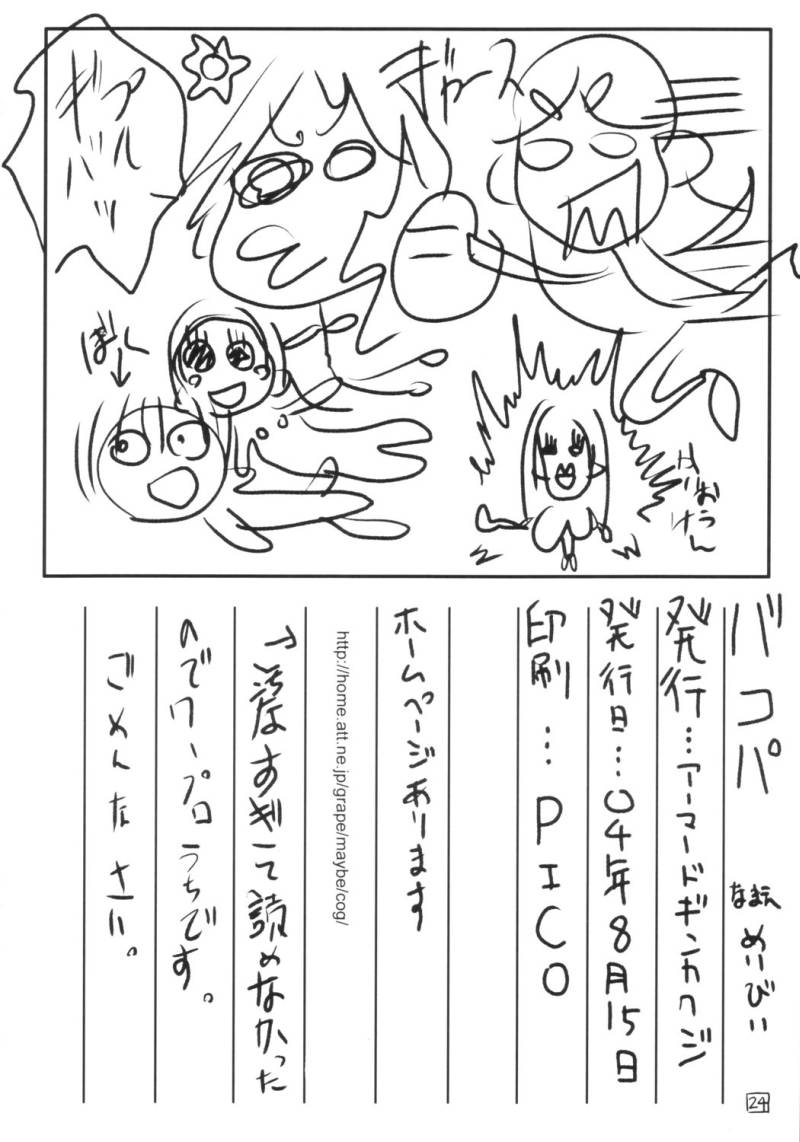 ギャース
ばしし
バコパ
なまえ めいびい
発行…アーマードギンカワジ
発行日…04年8月15日
印刷…PICO
ホームページあります
http://home.att.ne.jp/grape/maybe/cog/
すぎて読めなかった
のでワープロうちです。
ごめんなさい。
24